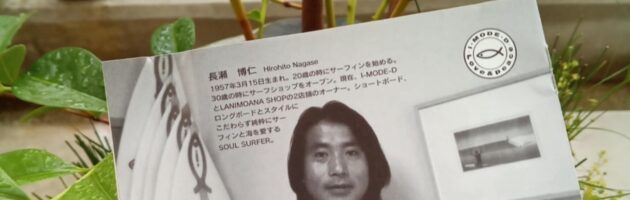 長瀬 博仁 Hirohito Nagase
1957年3月15日生まれ。20歳の時にサーフィンを始める。
30歳の時にサーフショップをオープン。現在、I-MODE-D
とLANIMOANA SHOPの2店舗のオーナー。ショートボード、
ロングボードとスタイルに
こだわらず純粋にサー
フィンと海を愛する
SOUL SURFER。
I-MODE-D
Love & Peace